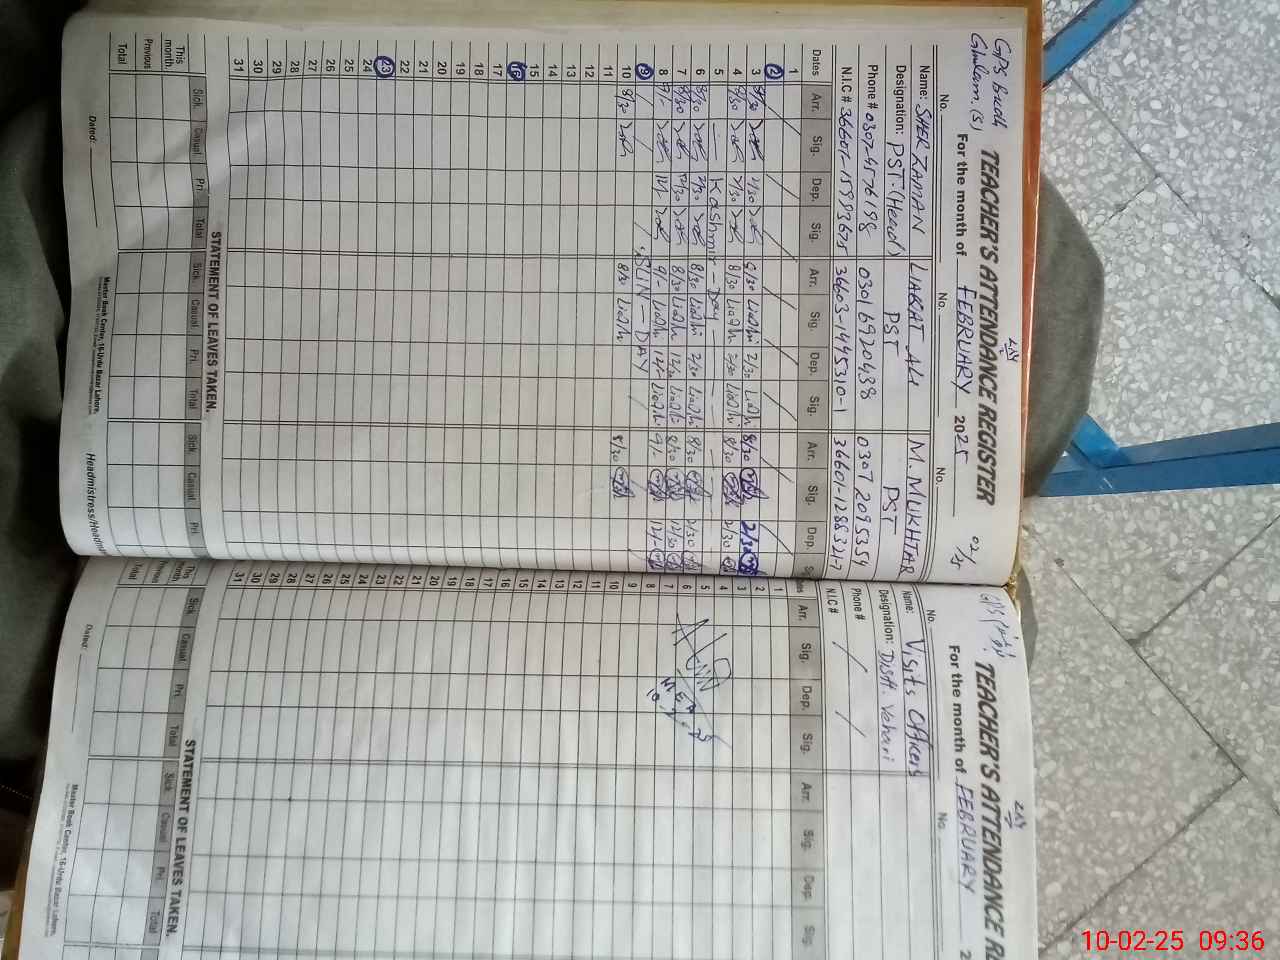 GPS Budh
Ghulam (S)
TEACHER'S ATTENDANCE REGISTER
For the month of FEBRUARY 2025
02/25
No. No. No.
Name: SHER ZAMAN LIAQAT ALI M. MUKHTAR
Designation: PST (Head) PST PST
Phone # 0307-4576198 03016920438 0307 2095354
N.I.C # 36601-1599367-5 36603-1445310-1 36601-1288321-7
Dates Arr. Sig. Dep. Sig. Arr. Sig. Dep. Sig. Arr. Sig. Dep.
1
2
3 2/30 8/30 2/30 8/30 2/30
4 8/30 2/30 8/30 2/30 8/30 2/30
5 Kashmir Day
6 8/30 2/30 8/30 2/30 8/30 2/30
7 8/30 12/30 8/30 12/30 8/30 12/30
8 9/- 12/- 9/- 12/- 9/- 12/-
9 SUN-DAY
10 8/30 8/30 8/30
11
12
13
14
15
16
17
18
19
20
21
22
23
24
25
26
27
28
29
30
31
STATEMENT OF LEAVES TAKEN.
Sick Casual Pri. Total Sick Casual Pri. Total Sick Casual Pri.
This month
Previous
Total
Dated:
Master Book Center, 16-Urdu Bazar Lahore.
Headmistress/Headm
TEACHER'S ATTENDANCE RE
For the month of FEBRUARY 2
No. No.
Name: Visits Officers
Designation: Distt. Vehari
Phone #
N.I.C #
Arr. Sig. Dep. Sig. Arr. Sig. Dep. Sig.
1
2
3
4
5
6
7
8
9
10
11
12
13
14
15
16
17
18
19
20
21
22
23
24
25
26
27
28
29
30
31
MEA
STATEMENT OF LEAVES TAKEN.
Sick Casual Pri. Total Sick Casual Pri. Total
This month
Previous
Total
Dated:
Master Book Center, 16-Urdu Bazar Lahore.
10-02-25 09:36